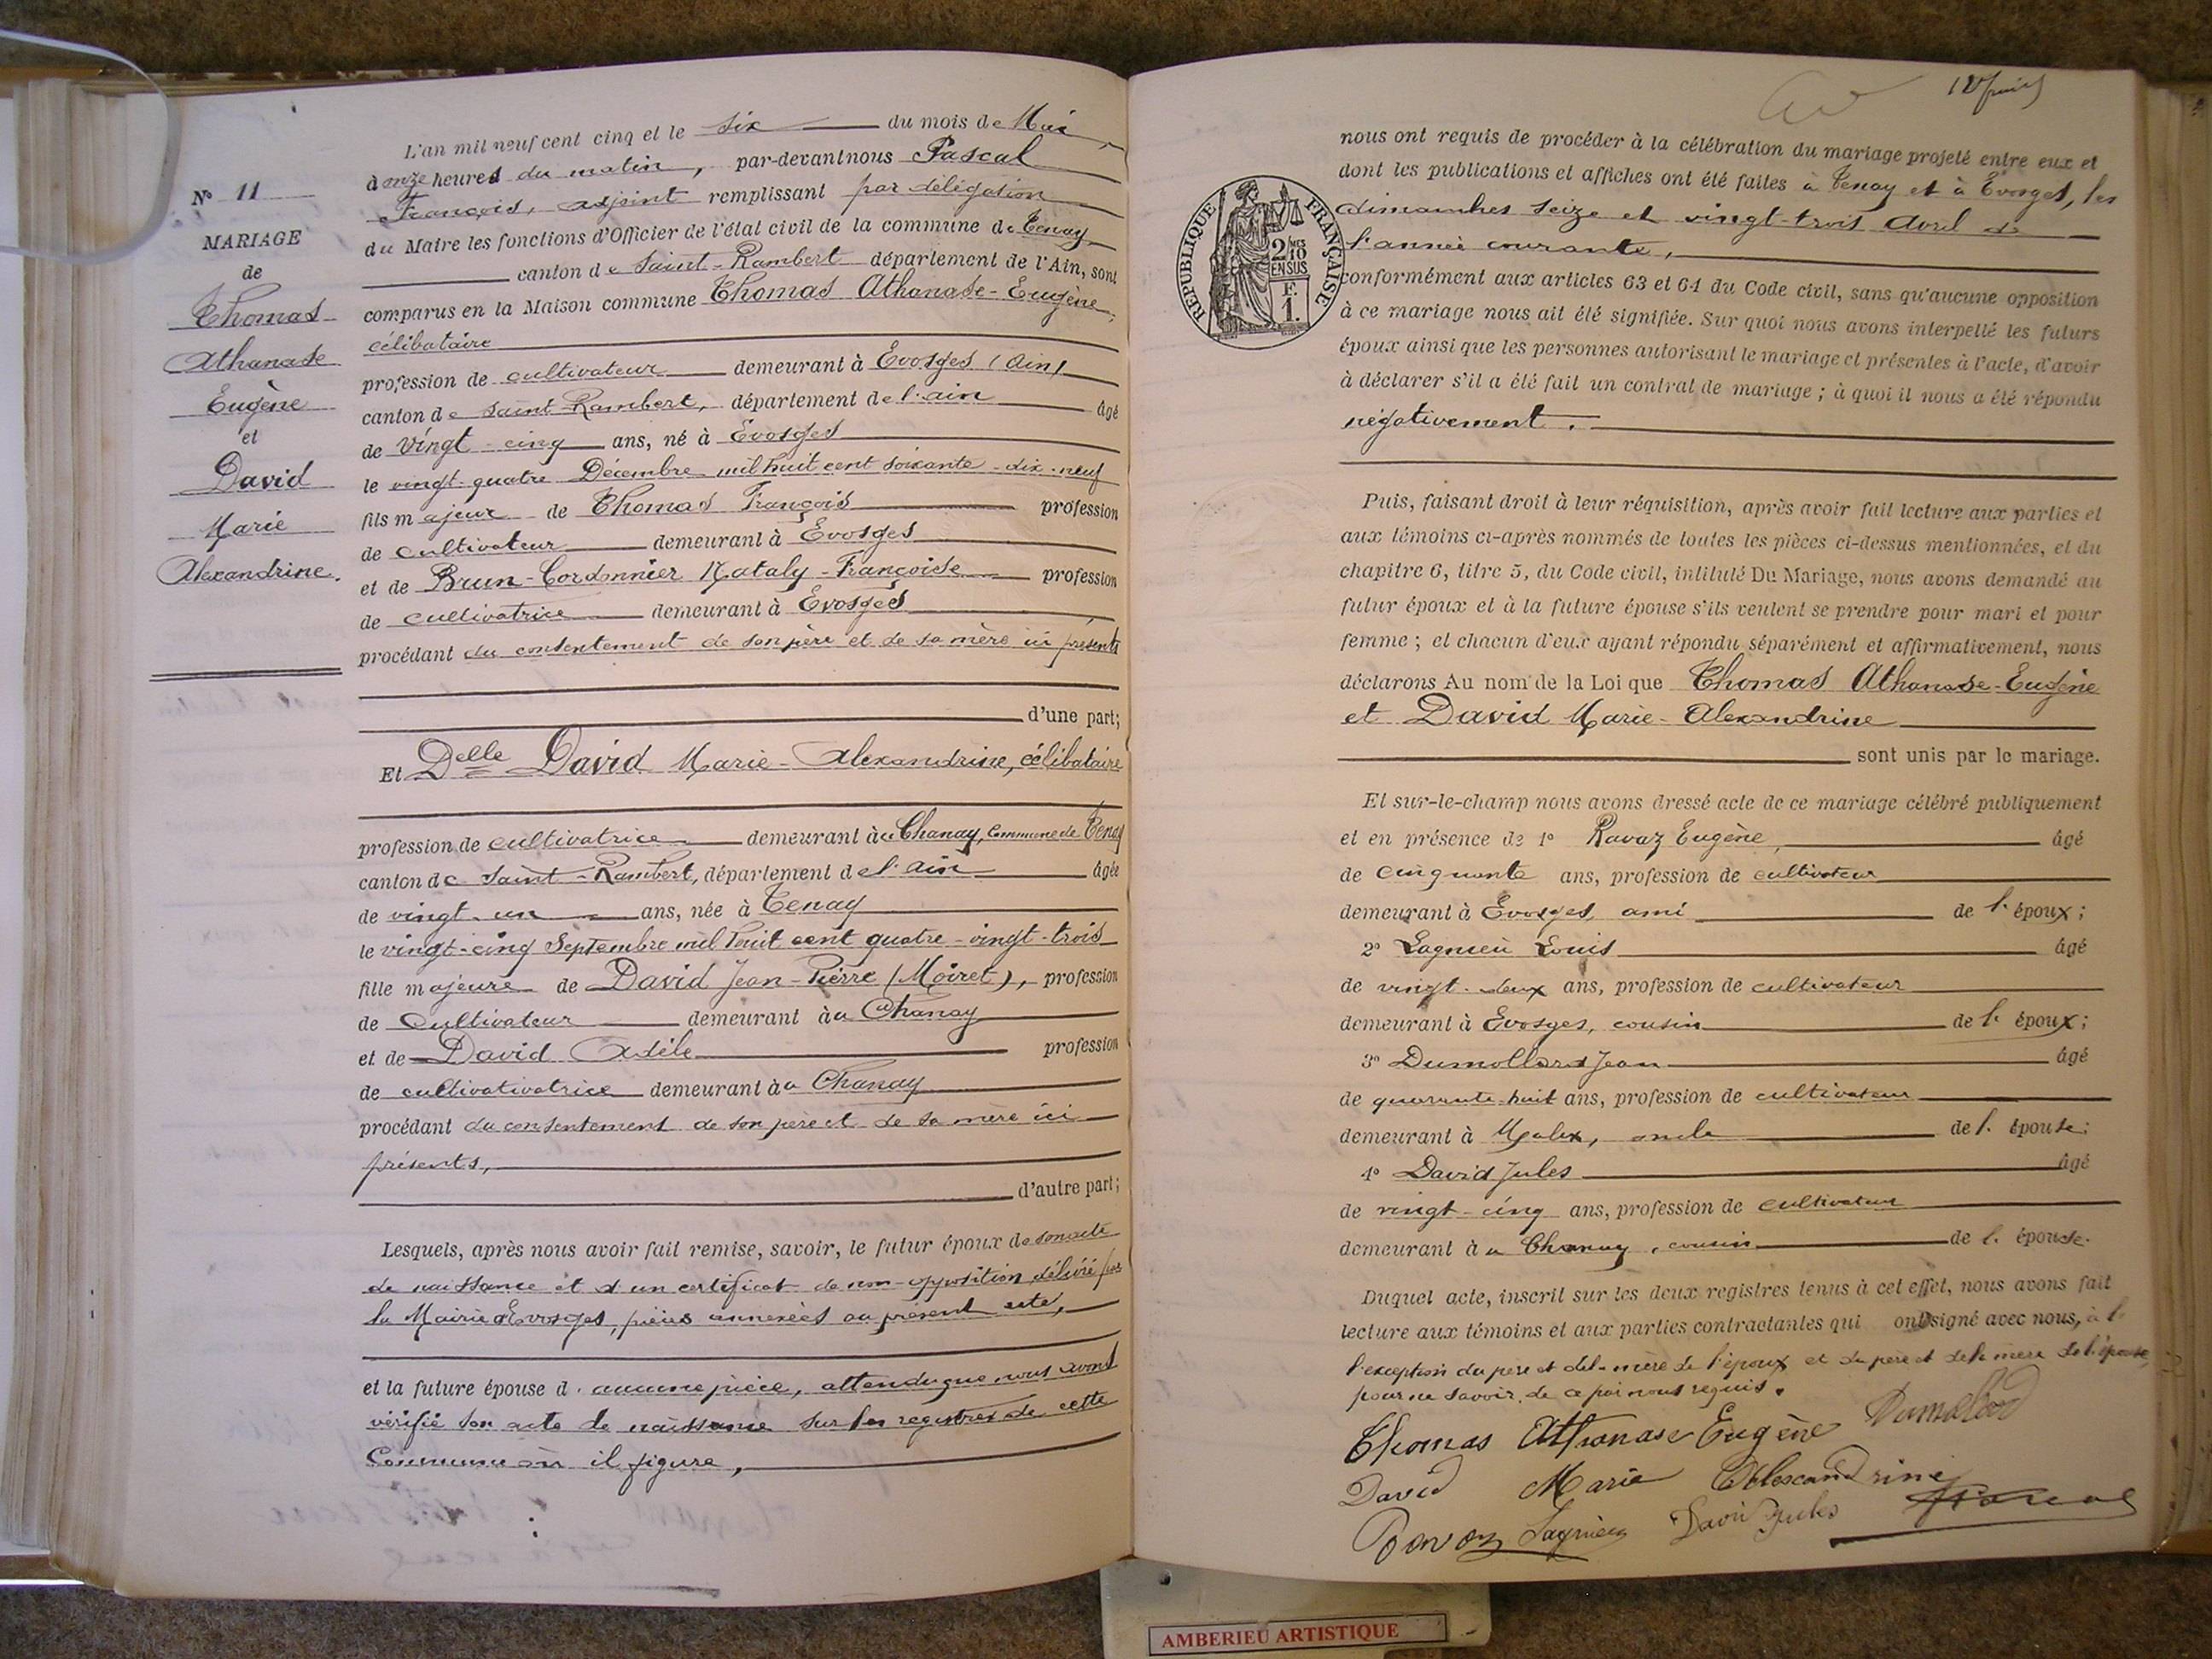 N° 11
MARIAGE
de
Thomas
Athanase
Eugène
et
David
Marie
Alexandrine.
L'an mil neuf cent cinq et le six du mois de Mai
à onze heures du matin, par-devant nous Pascal
François, adjoint remplissant par délégation
du Maire les fonctions d'Officier de l'état civil de la commune de Tenay
canton de Saint-Rambert département de l'Ain, sont
comparus en la Maison commune Thomas Athanase-Eugène,
célibataire
profession de cultivateur demeurant à Evosges (Ain)
canton de Saint-Rambert, département de l'ain âgé
de vingt-cinq ans, né à Evosges
le vingt-quatre Décembre mil huit cent soixante-dix-neuf
fils majeur de Thomas François profession
de cultivateur demeurant à Evosges
et de Brun-Cordonnier Nataly-Françoise profession
de cultivatrice demeurant à Evosges
procédant du consentement de son père et de sa mère ici présents
d'une part;
Et Delle David Marie-Alexandrine, célibataire
profession de cultivatrice demeurant àu Chanay, Commune de Tenay
canton de Saint-Rambert, département de l'ain âgée
de vingt-un ans, née à Tenay
le vingt-cinq Septembre mil huit cent quatre-vingt-trois
fille majeure de David Jean-Pierre (Moiret), profession
de Cultivateur demeurant àu Chanay
et de David Adèle profession
de cultivativatrice demeurant àu Chanay
procédant du consentement de son père et de sa mère ici
présents,
d'autre part;
Lesquels, après nous avoir fait remise, savoir, le futur époux de son acte
de naissance et d'un certificat de non-opposition, délivré par
la Mairie d'Evosges, pièces annexées au présent acte,
et la future épouse d'aucune pièce, attendu que nous avons
vérifié son acte de naissance sur les registres de cette
Commune où il figure,
RÉPUBLIQUE FRANÇAISE
2/10 MES
EN SUS
F.
1.
nous ont requis de procéder à la célébration du mariage projeté entre eux et
dont les publications et affiches ont été faites à Tenay et à Evosges, les
dimanches seize et vingt-trois Avril de
l'année courante,
conformément aux articles 63 et 64 du Code civil, sans qu'aucune opposition
à ce mariage nous ait été signifiée. Sur quoi nous avons interpellé les futurs
époux ainsi que les personnes autorisant le mariage et présentes à l'acte, d'avoir
à déclarer s'il a été fait un contrat de mariage ; à quoi il nous a été répondu
négativement.
Puis, faisant droit à leur réquisition, après avoir fait lecture aux parties et
aux témoins ci-après nommés de toutes les pièces ci-dessus mentionnées, et du
chapitre 6, titre 5, du Code civil, intitulé Du Mariage, nous avons demandé au
futur époux et à la future épouse s'ils veulent se prendre pour mari et pour
femme ; et chacun d'eux ayant répondu séparément et affirmativement, nous
déclarons Au nom de la Loi que Thomas Athanase-Eugène
et David Marie-Alexandrine
sont unis par le mariage.
Et sur-le-champ nous avons dressé acte de ce mariage célébré publiquement
et en présence de 1° Ravaz Eugène, âgé
de cinquante ans, profession de cultivateur
demeurant à Evosges, ami de l'époux ;
2° Lagnieu Louis âgé
de vingt-deux ans, profession de cultivateur
demeurant à Evosges, cousin de l'époux ;
3° Dumollard Jean âgé
de quarante-huit ans, profession de cultivateur
demeurant à oncle de l'épouse ;
4° David Jules âgé
de vingt-cinq ans, profession de cultivateur
demeurant àu Chanay, cousin de l'épouse.
Duquel acte, inscrit sur les deux registres tenus à cet effet, nous avons fait
lecture aux témoins et aux parties contractantes qui ont signé avec nous, à l'
l'exception du père et de la mère de l'époux et du père et de la mère de l'épouse
pour ne savoir, de ce par nous requis.
Thomas Athanase Eugène Dumollard
David Marie Alexandrine
Ravaz Lagnieu David Jules Pascal
AMBERIEU ARTISTIQUE